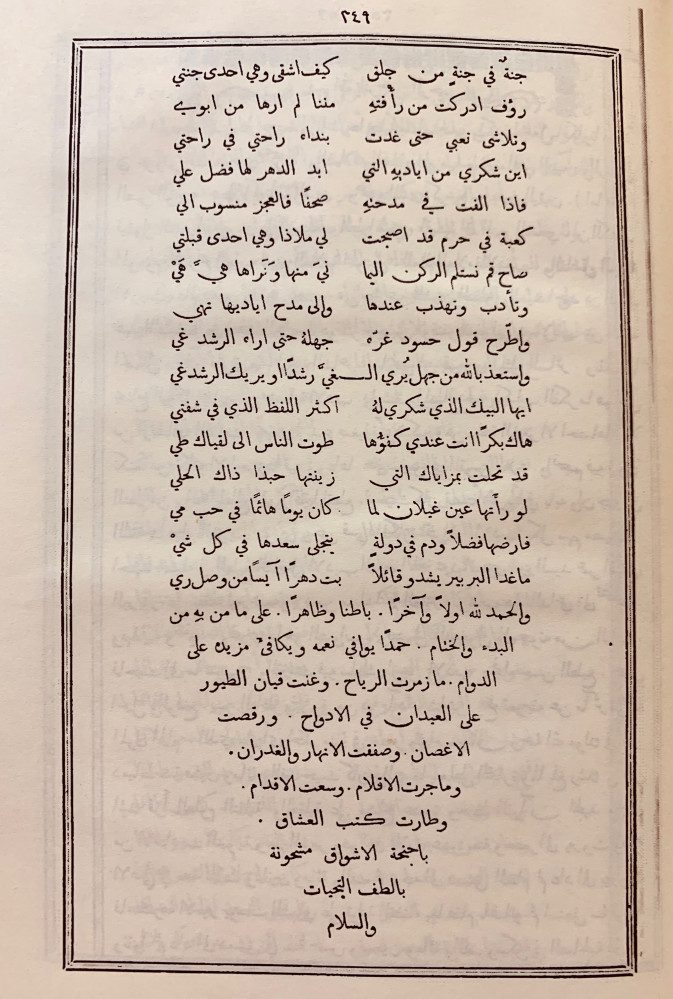 ٣٤٩
جنةٌ في جنةٍ من جلق كيف اشقى وهي احدى جنتي
رؤف ادركت من رأفتهِ مننا لم ارها من ابويے
وتلاشى تعبي حتى غدت بنداء راحتي في راحتي
اين شكري من اياديهِ التي ابد الدهر لها فضل علي
فاذا الفت في مدحتهِ صحفًا فالعجز منسوب الي
كعبة في حرم قد اصبحت لي ملاذا وهي احدى قبلتي
صاح قم نستلم الركن اليما نيَ منها وَتَراها هيَّ هَيْ
وتأدب وتهذب عندها والى مدح اياديها تهي
واطّرح قول حسود غرّه جهلهُ حتى اراه الرشد غي
واستعذ بالله من جهل يُري الــغيَّ رشدًا او يريك الرشد غي
ايها البيك الذي شكري لهُ اكثر اللفظ الذي في شفتي
هاك بكرًا انت عندي كفؤها طوت الناس الى لقياك طي
قد تحلت بمزاياك التي زينتها حبذا ذاك الحلي
لو رأتها عين غيلان لما كان يومًا هائمًا في حب مي
فارضها فضلاً ودم في دولةٍ ينجلى سعدها في كل شيْ
ما غدا البربير يشدو قائلاً بت دهرًا آيسًا من وصل ري
والحمد لله اولاً وآخرًا . باطنا وظاهرًا . على ما من بهِ من
البدء والختام . حمدًا يوافي نعمه ويكافئ مزيده على
الدوام . ما زمرت الرياح . وغنت قيان الطيور
على العيدان في الادواح . ورقصت
الاغصان . وصفقت الانهار والغدران .
وما جرت الاقلام . وسعت الاقدام .
وطارت كتب العشاق .
باجنحة الاشواق مشحونة
بالطف التحيات
والسلام